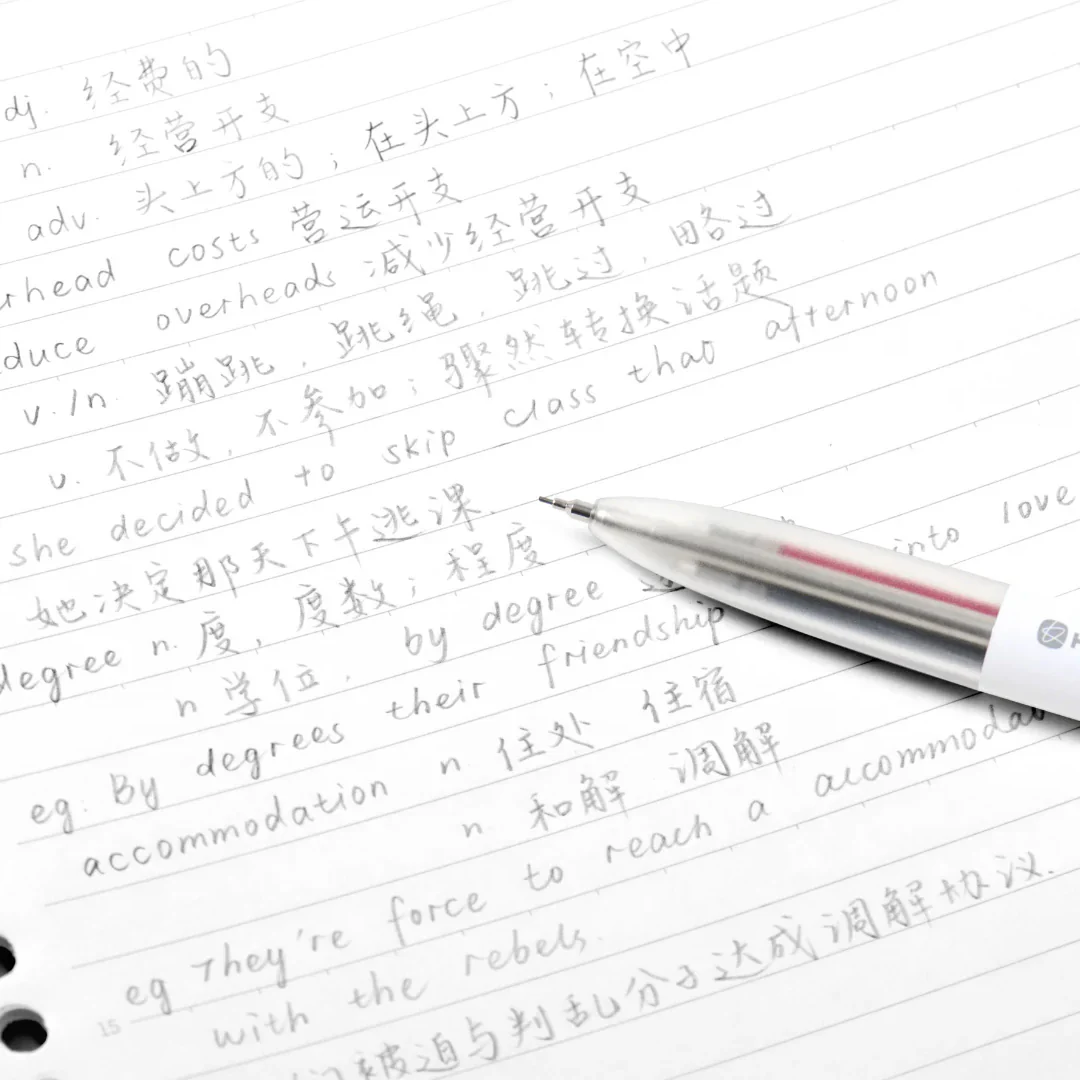 dj. 经费的
n. 经营开支
adv. 头上方的；在头上方；在空中
rhead costs 营运开支
duce overheads 减少经营开支
v./n. 蹦跳，跳绳，跳过，略过
v. 不做，不参加；骤然转换话题
she decided to skip class that afternoon
她决定那天下午逃课.
degree n. 度，度数；程度
n 学位， by degree into love
eg: By degrees their friendship
accommodation n 住处 住宿
n 和解 调解
eg They're force to reach a accommodat
with the rebels.
们被迫与判乱分子达成调解协议.
15